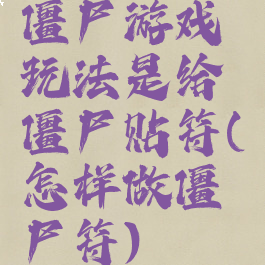 僵尸游戏
玩法是给
僵尸贴符(
怎样做僵
尸符)